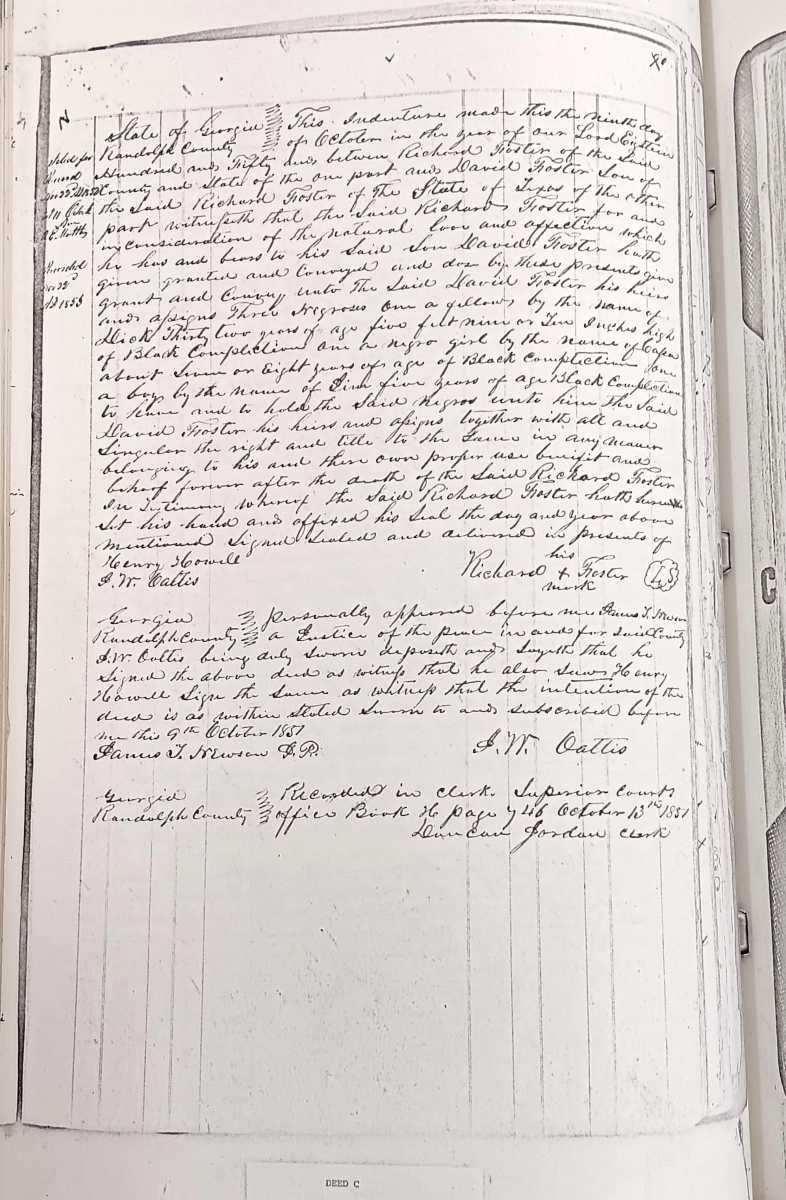 State of Georgia This Indenture made this the ninth day
Randolph County of October in the year of our Lord Eighteen
Hundred and Fifty and between Richard Foster of the Said
County and State of the one part and David Foster Son of
the Said Richard Foster of the State of Texas of the other
part witnesseth that the Said Richard Foster for and
in consideration of the natural love and affection which
he has and bears to his Said Son David Foster hath
given granted and Conveyed and dos by these presents give
grant and Convey unto the Said David Foster his heirs
and assigns Three Negroes One a fellow by the name of
Dick Thirty two years of age five feet nine or Ten Inches high
of Black Complection one a negro girl by the name of
about Seven or Eight years of age of Black Complection one
a boy by the name of Jim five years of age Black Complection
to have and to hold the Said negros unto him the Said
David Foster his heirs and assigns together with all and
Singular the right and title to the Same in any maner
belonging to his and there own proper use benifit and
behoof forever after the death of the Said Richard Foster
In testimony whereof the Said Richard Foster hath
Set his hand and affixed his Seal the day and year above
mentioned Signed Sealed and delivered in presents of
Henry Howell his
J. W. Oattis Richard + Foster LS
mark
Georgia personally appeared before me James T. Newson
Randolph County a Justice of the peace in and for said County
J. W. Oattis being duly sworn deposeth and Sayeth that he
Signed the above deed as witness that he also saw Henry
Howell Sign the Same as witness that the intention of the
deed is as within Stated Sworn to and subscribed before
me this 9th October 1851
James T. Newson J.P. J. W. Oattis
Georgia Recorded in clerk Superior Courts
Randolph County office Book H page 746 October 13th 1851
Duncan Jordan clerk
Filed for
Record
Recorded
1853
C
DEED C